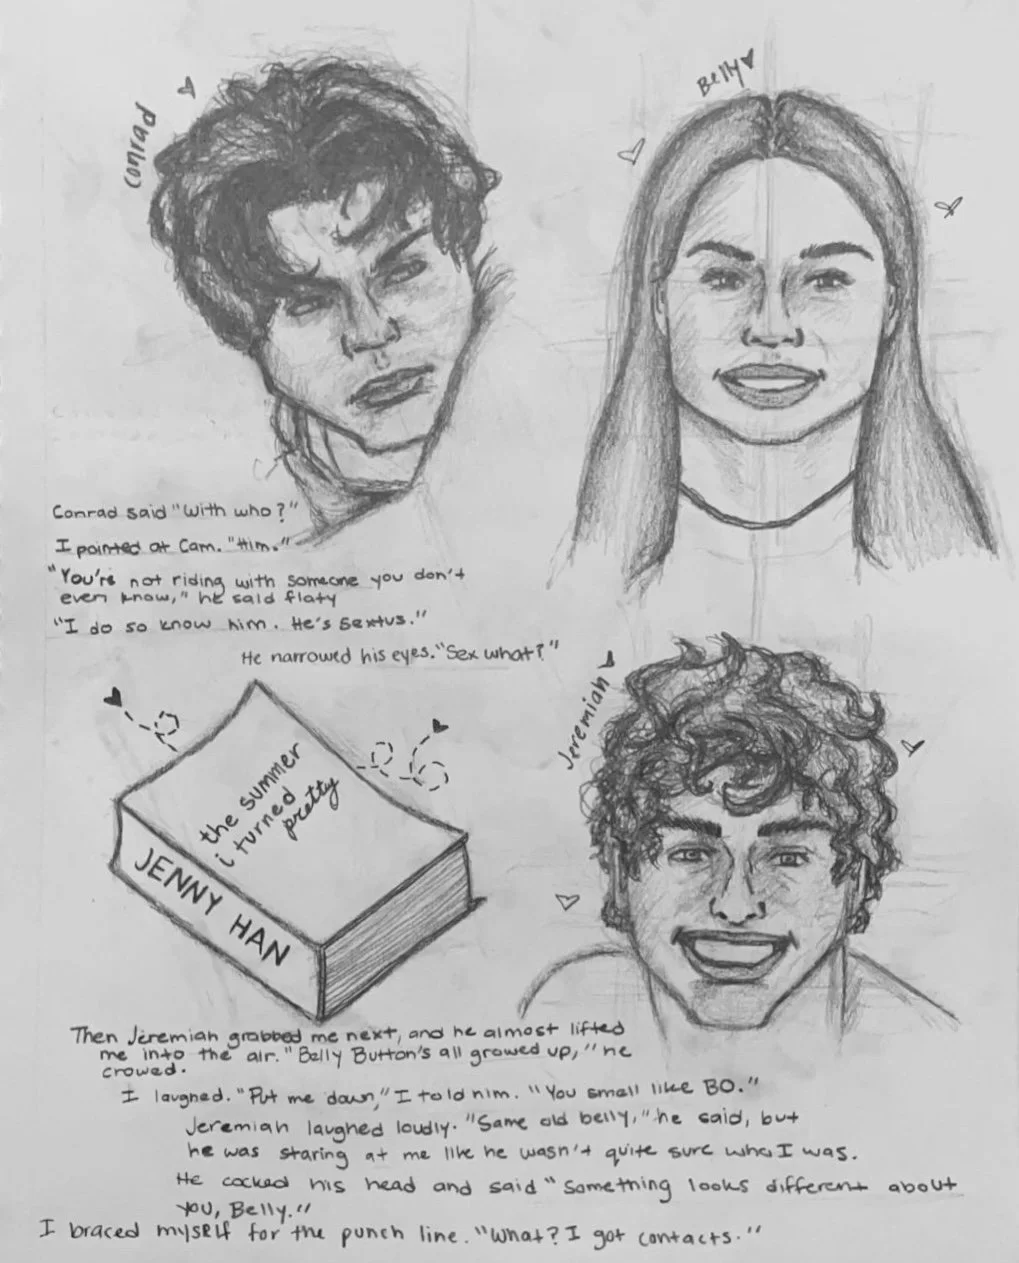 Conrad
Belly
Conrad said "With who?"
I pointed at Cam. "Him."
"You're not riding with someone you don't
even know," he said flaty
"I do so know him. He's Sextus."
He narrowed his eyes. "Sex what?"
Jeremiah
the summer
i turned
pretty
JENNY HAN
Then Jeremiah grabbed me next, and he almost lifted
me into the air. "Belly Button's all growed up," he
crowed.
I laughed. "Put me down," I told him. "You smell like BO."
Jeremiah laughed loudly. "Same old belly," he said, but
he was staring at me like he wasn't quite sure who I was.
He cocked his head and said "Something looks different about
you, Belly."
I braced myself for the punch line. "What? I got contacts."